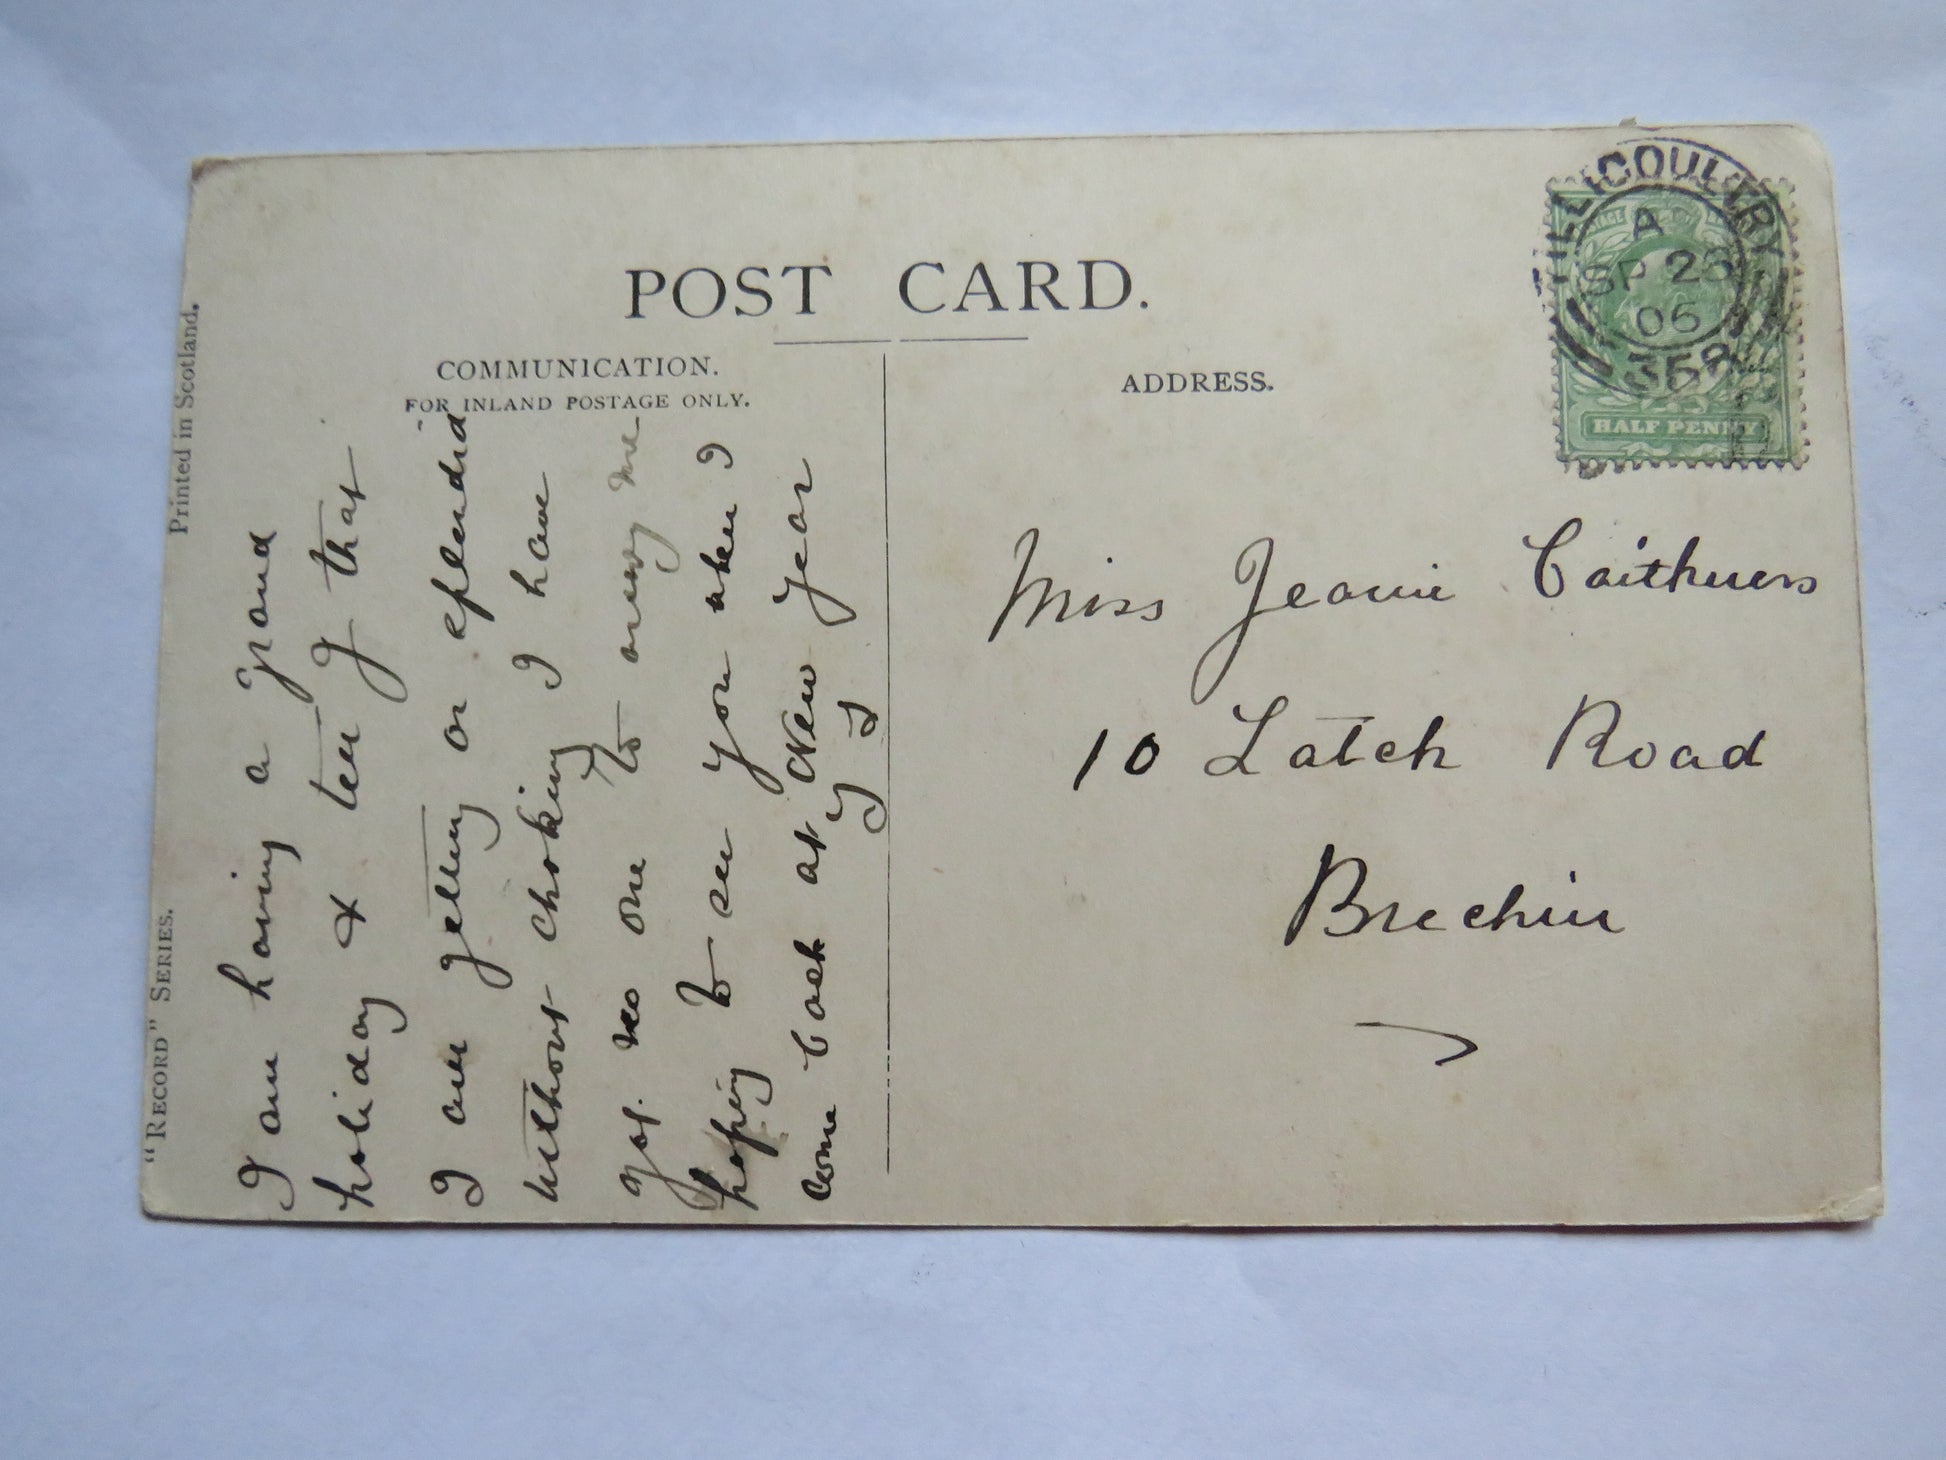 POST CARD.
COMMUNICATION.
FOR INLAND POSTAGE ONLY.
ADDRESS.
"RECORD" SERIES.
Printed in Scotland.
TILLICOULTRY
A
SP 25
06
HALF PENNY
I am having a grand
holiday & tell J that
I am getting on splendid
without choking I have
got no one to annoy me
hoping to see you when I
come back at New Year
Miss Jeanie Caithness
10 Latch Road
Brechin